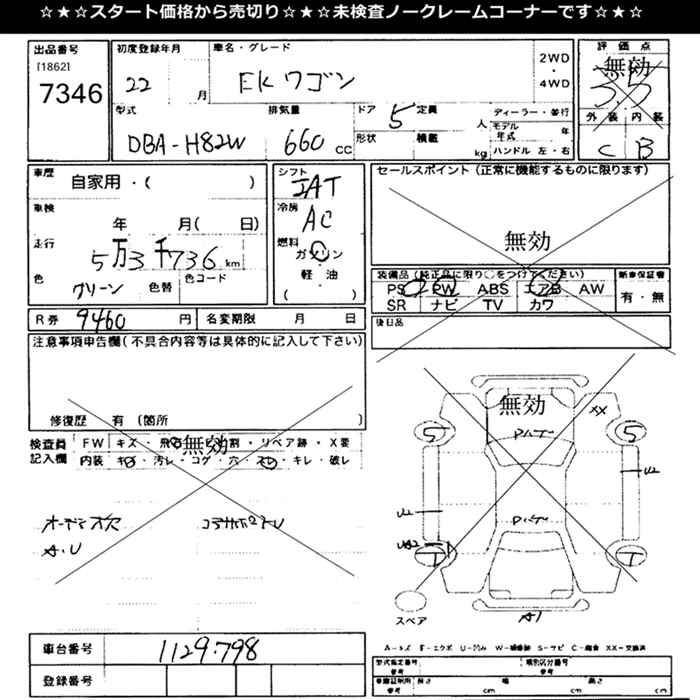 ☆★☆★スタート価格から売切り☆★☆★未検査ノークレームコーナーです☆★☆
出品番号 [1862] 7346
初度登録年月 22 月
車名・グレード EKワゴン
2WD・4WD
評価点 無効 3.5
外装 内装
C B
型式 DBA-H82W
排気量 660 CC
ドア 5 定員 人
形状 積載 kg
ディーラー・並行
モデル年式 年
ハンドル 左・右
車歴 自家用・( )
シフト IAT
セールスポイント(正常に機能するものに限ります)
無効
車検 年 月( 日)
冷房 AC
走行 5万3千736km
燃料 ガソリン
軽・油
( )
色 グリーン 色替 色コード
装備品(純正品に限り○をつけてください) 新車保証書
PS PW ABS エアB AW 有・無
SR ナビ TV カワ
R券 9460 円 名変期限 月 日
後日品
注意事項申告欄(不具合内容等は具体的に記入して下さい)
修復歴 有(箇所 )
検査員記入欄
FW キズ・飛石・ヒビ割・リペア跡・X要
無効
内装 キズ・汚レ・コゲ・穴・スレ・キレ・破レ
オーディオ欠
A.U
無効
XX
5 5
スペア
A1
車台番号 1129798
登録番号
A-キズ E-エクボ U-凹み W-補修跡 S-サビ C-腐食 XX-交換済
型式指定番号 参考
類別区分番号 参考
車庫証明用 参考 長さ cm 幅 cm 高さ cm